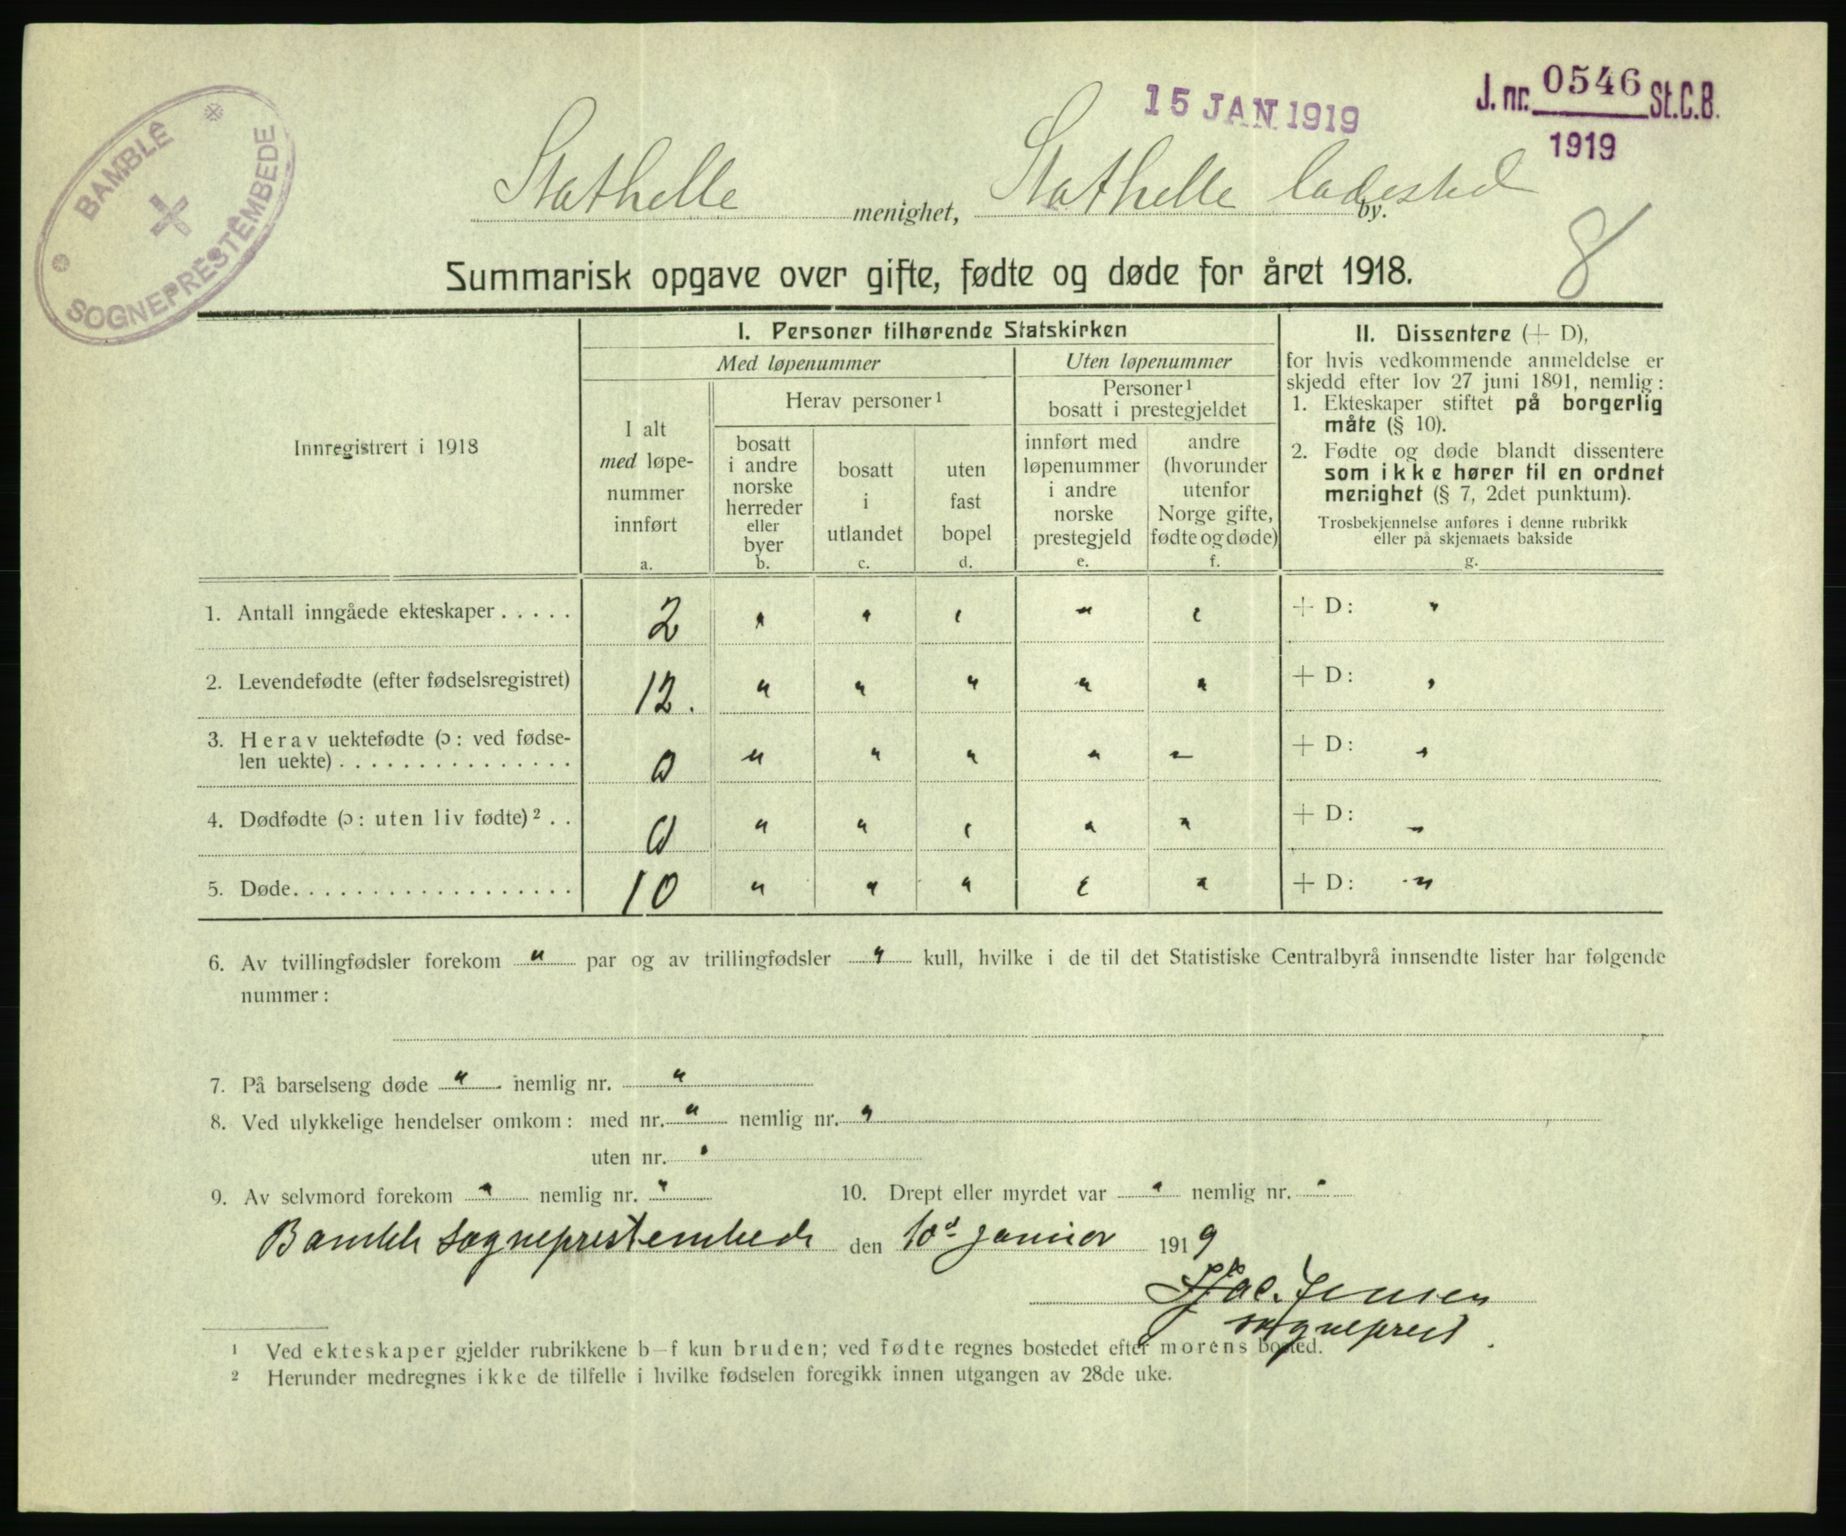 BAMBLÊ
SOGNEPRESTÊMBEDE
15 JAN 1919
J. nr. 0546 St.C.B.
1919
Stathelle menighet, Stathelle ladested by.
8
Summarisk opgave over gifte, fødte og døde for året 1918.
Innregistrert i 1918
I. Personer tilhørende Statskirken
Med løpenummer
Uten løpenummer
I alt
med løpe-
nummer
innført
a.
Herav personer¹
bosatt
i andre
norske
herreder
eller
byer
b.
bosatt
i
utlandet
c.
uten
fast
bopel
d.
Personer¹
bosatt i prestegjeldet
innført med
løpenummer
i andre
norske
prestegjeld
e.
andre
(hvorunder
utenfor
Norge gifte,
fødte og døde)
f.
II. Dissentere (+ D),
for hvis vedkommende anmeldelse er
skjedd efter lov 27 juni 1891, nemlig:
1. Ekteskaper stiftet på borgerlig
måte (§ 10).
2. Fødte og døde blandt dissentere
som ikke hører til en ordnet
menighet (§ 7, 2det punktum).
Trosbekjennelse anføres i denne rubrikk
eller på skjemaets bakside
g.
1. Antall inngåede ekteskaper . . . . . 2 " " " " " + D: "
2. Levendefødte (efter fødselsregistret) 12. " " " " " + D: "
3. Herav uektefødte (ɔ: ved fødse-
len uekte) . . . . . . . . . . . . . . . 0 " " " " " + D: "
4. Dødfødte (ɔ: uten liv fødte)² . . 0 " " " " " + D: "
5. Døde. . . . . . . . . . . . . . . . . . 10 " " " " " + D: "
6. Av tvillingfødsler forekom " par og av trillingfødsler " kull, hvilke i de til det Statistiske Centralbyrå innsendte lister har følgende
nummer:
7. På barselseng døde " nemlig nr. "
8. Ved ulykkelige hendelser omkom: med nr. " nemlig nr. "
uten nr. "
9. Av selvmord forekom " nemlig nr. " 10. Drept eller myrdet var " nemlig nr. "
Bamble sogneprestembede den 10d januar 1919
Jac. Jensen
sogneprest.
¹ Ved ekteskaper gjelder rubrikkene b–f kun bruden; ved fødte regnes bostedet efter morens bosted.
² Herunder medregnes ikke de tilfelle i hvilke fødselen foregikk innen utgangen av 28de uke.